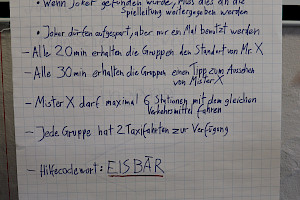 • Wenn Joker gefunden wurde, muss dies an die
Spielleitung weitergegeben werden
• Joker dürfen aufgespart, aber nur ein Mal benutzt werden
- Alle 20 min erhalten die Gruppen den Standort von Mr. X
- Alle 30 min erhalten die Gruppen einen Tipp zum Aussehen
von Mister X
- Mister X darf maximal 6 Stationen mit dem gleichen
Verkehrsmittel fahren
- Jede Gruppe hat 2 Taxifahrten zur Verfügung
- Hilfecodewort: EISBÄR